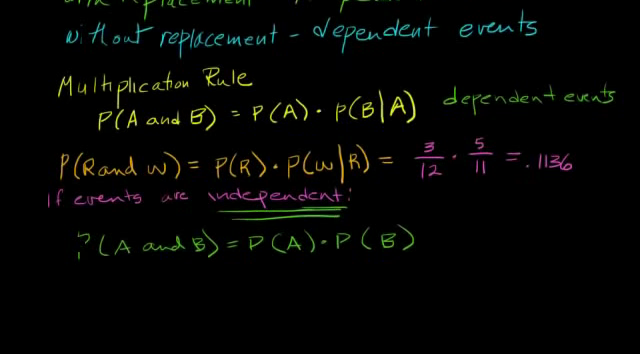 with replacement
without replacement - dependent events
Multiplication Rule
P(A and B) = P(A) · P(B|A) dependent events
P(R and W) = P(R) · P(W|R) = 3/12 · 5/11 = .1136
If events are independent:
P(A and B) = P(A) · P(B)